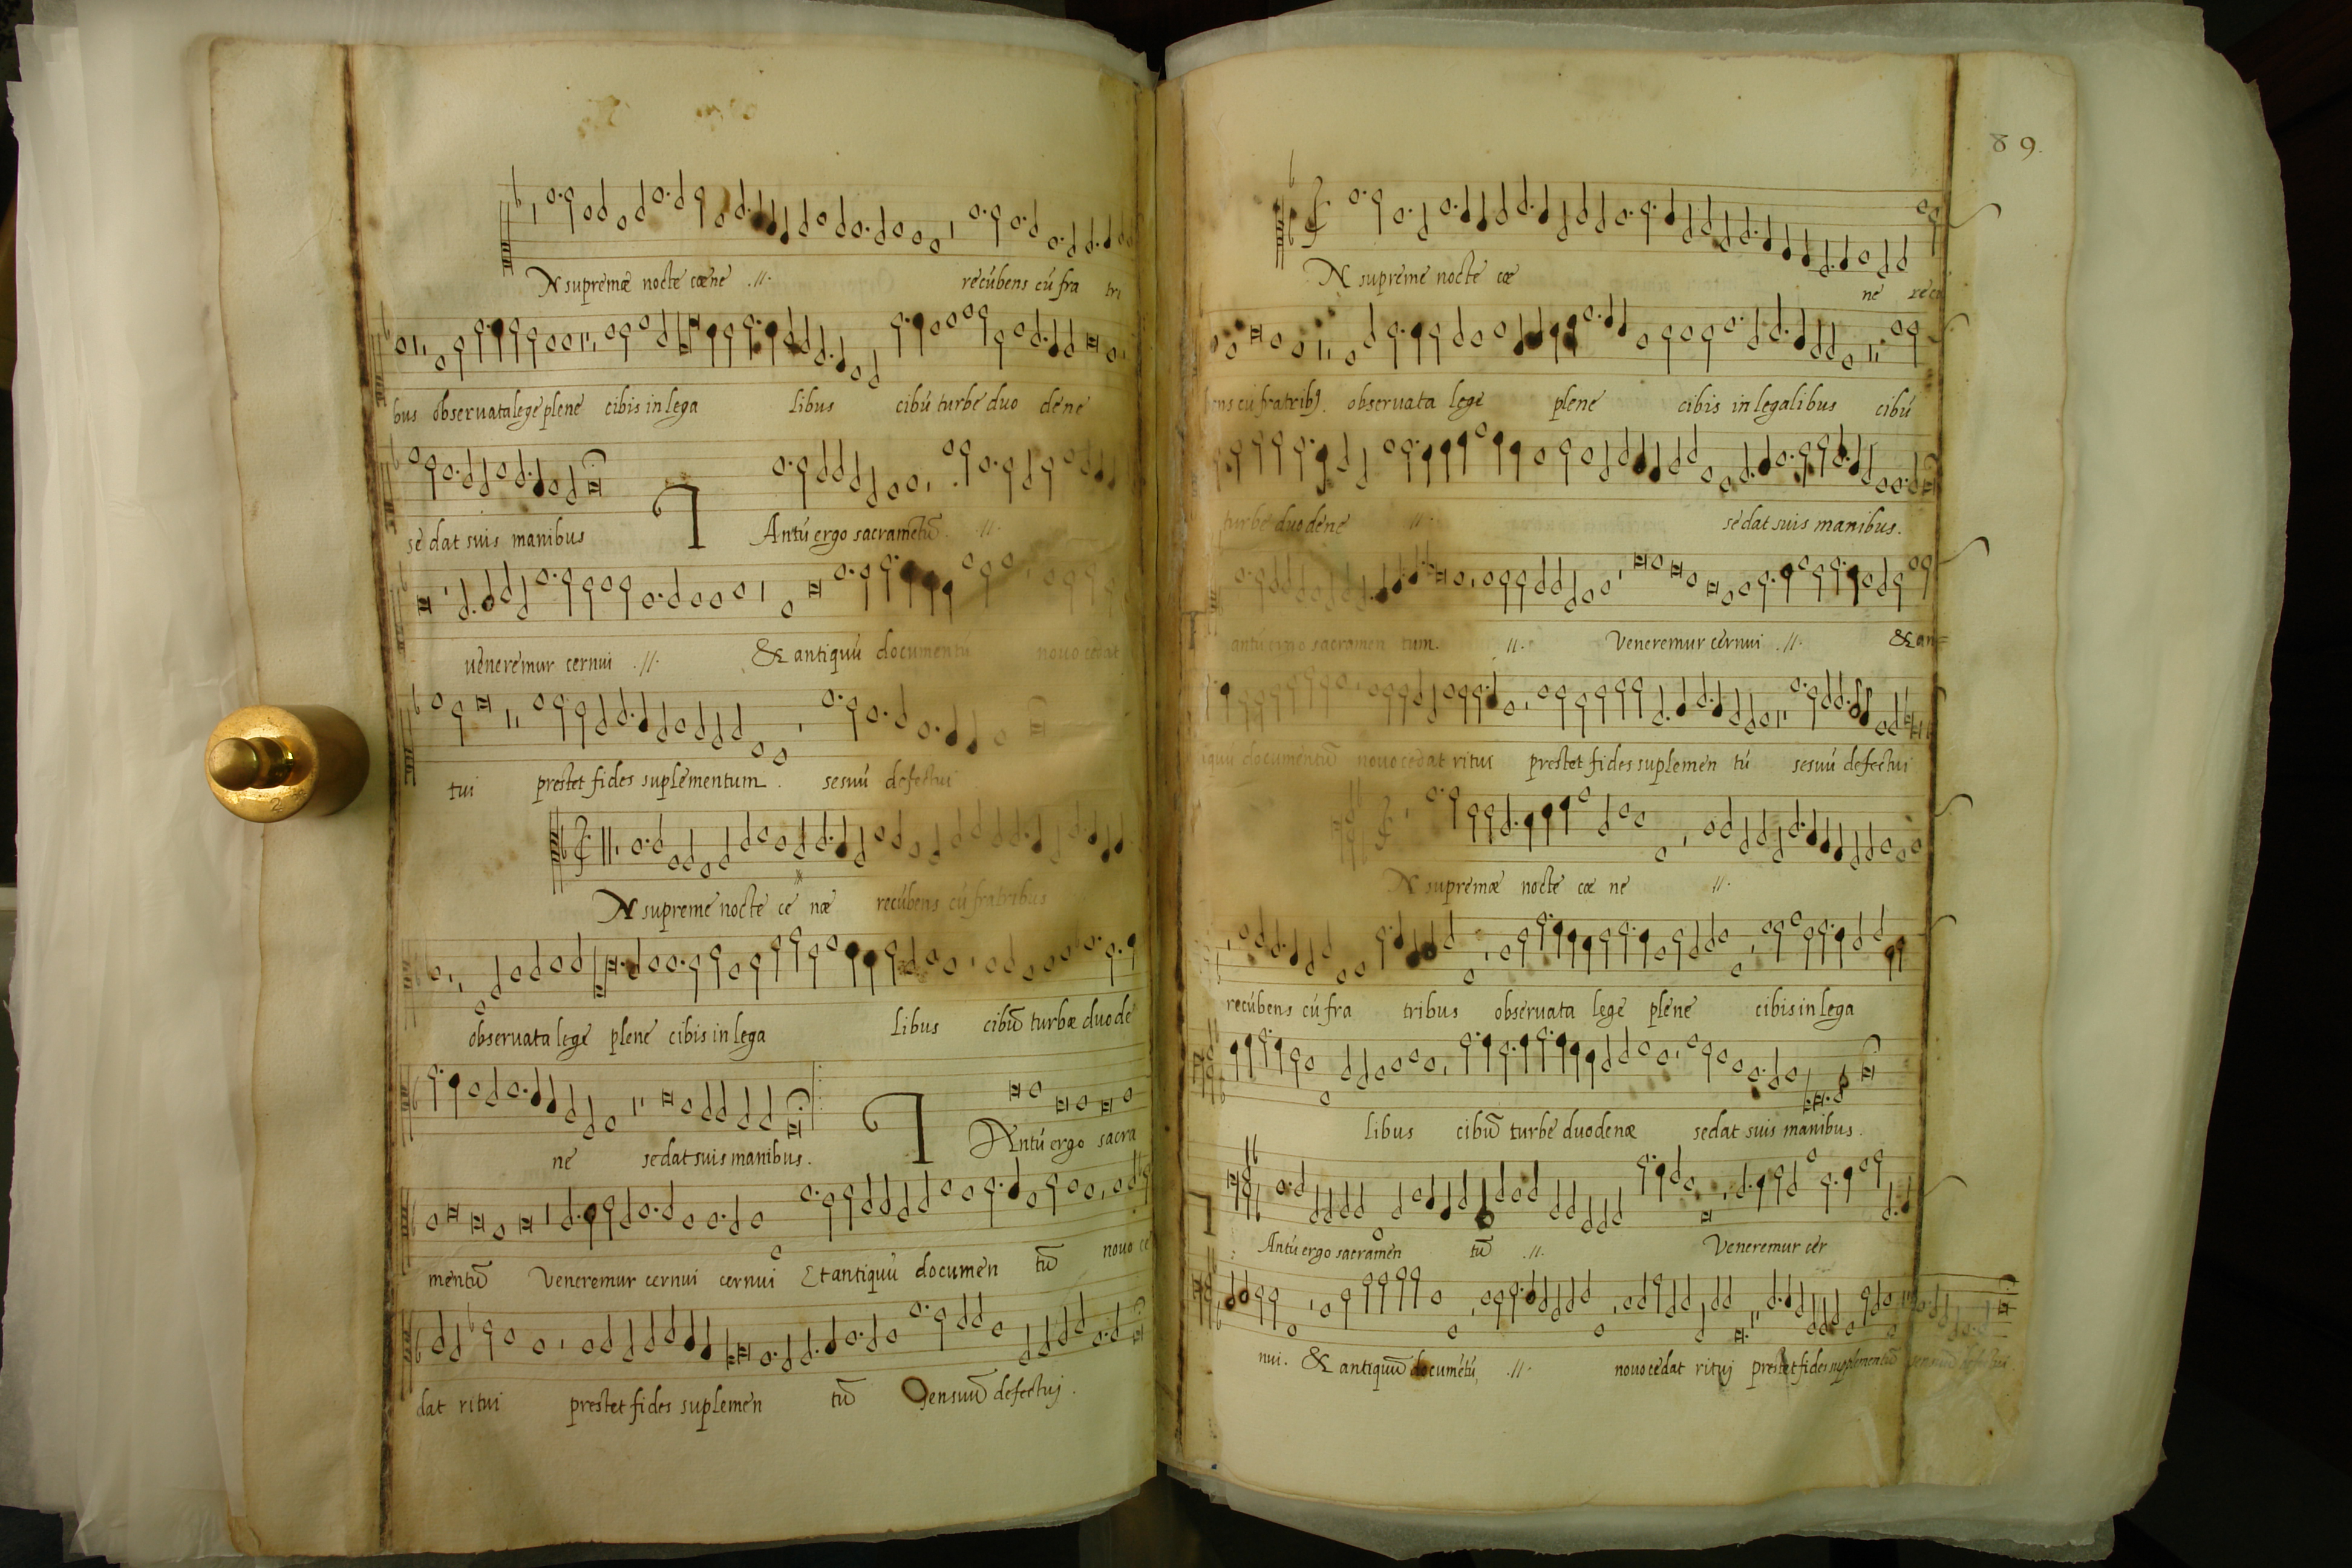 N supremæ nocte cœne .//. recúbens cú fra tri
bus observata lege plene cibis in lega libus cibú turbe duo dene
se dat suis manibus T Antú ergo sacramẽtũ .//.
veneremur cernui .//. & antiquú documentú novo cedat
tui prestet fides suplementum . sesuú defectui
N supreme nocte ce næ recúbens cú fratribus
observata lege plene cibis in lega libus cibũ turbæ duo de
ne se dat suis manibus . T Antú ergo sacra
mentũ Veneremur cernui cernui Et antiquú documen tũ novo ce
dat ritui prestet fides suplemen tũ Sensuũ defectuj .
89.
N supreme nocte cœ ne
cú fratribꝰ. observata lege plene cibis in legalibus cibú
turbe duo dene .//. se dat suis manibus .
antú ergo sacramen tum. .//. Veneremur cernui .//. & an=
documentũ novo cedat ritui prestet fides suplemen tú sesuú defectui
N supremæ nocte cœ ne .//.
recúbens cú fra tribus observata lege plene cibis in lega
libus cibũ turbe duodenæ se dat suis manibus .
Antú ergo sacramen tũ .//. Veneremur cer
nui . & antiquũ documẽtú, .//. novo cedat rituj prestet fides supplementũ sensuũ defectui .